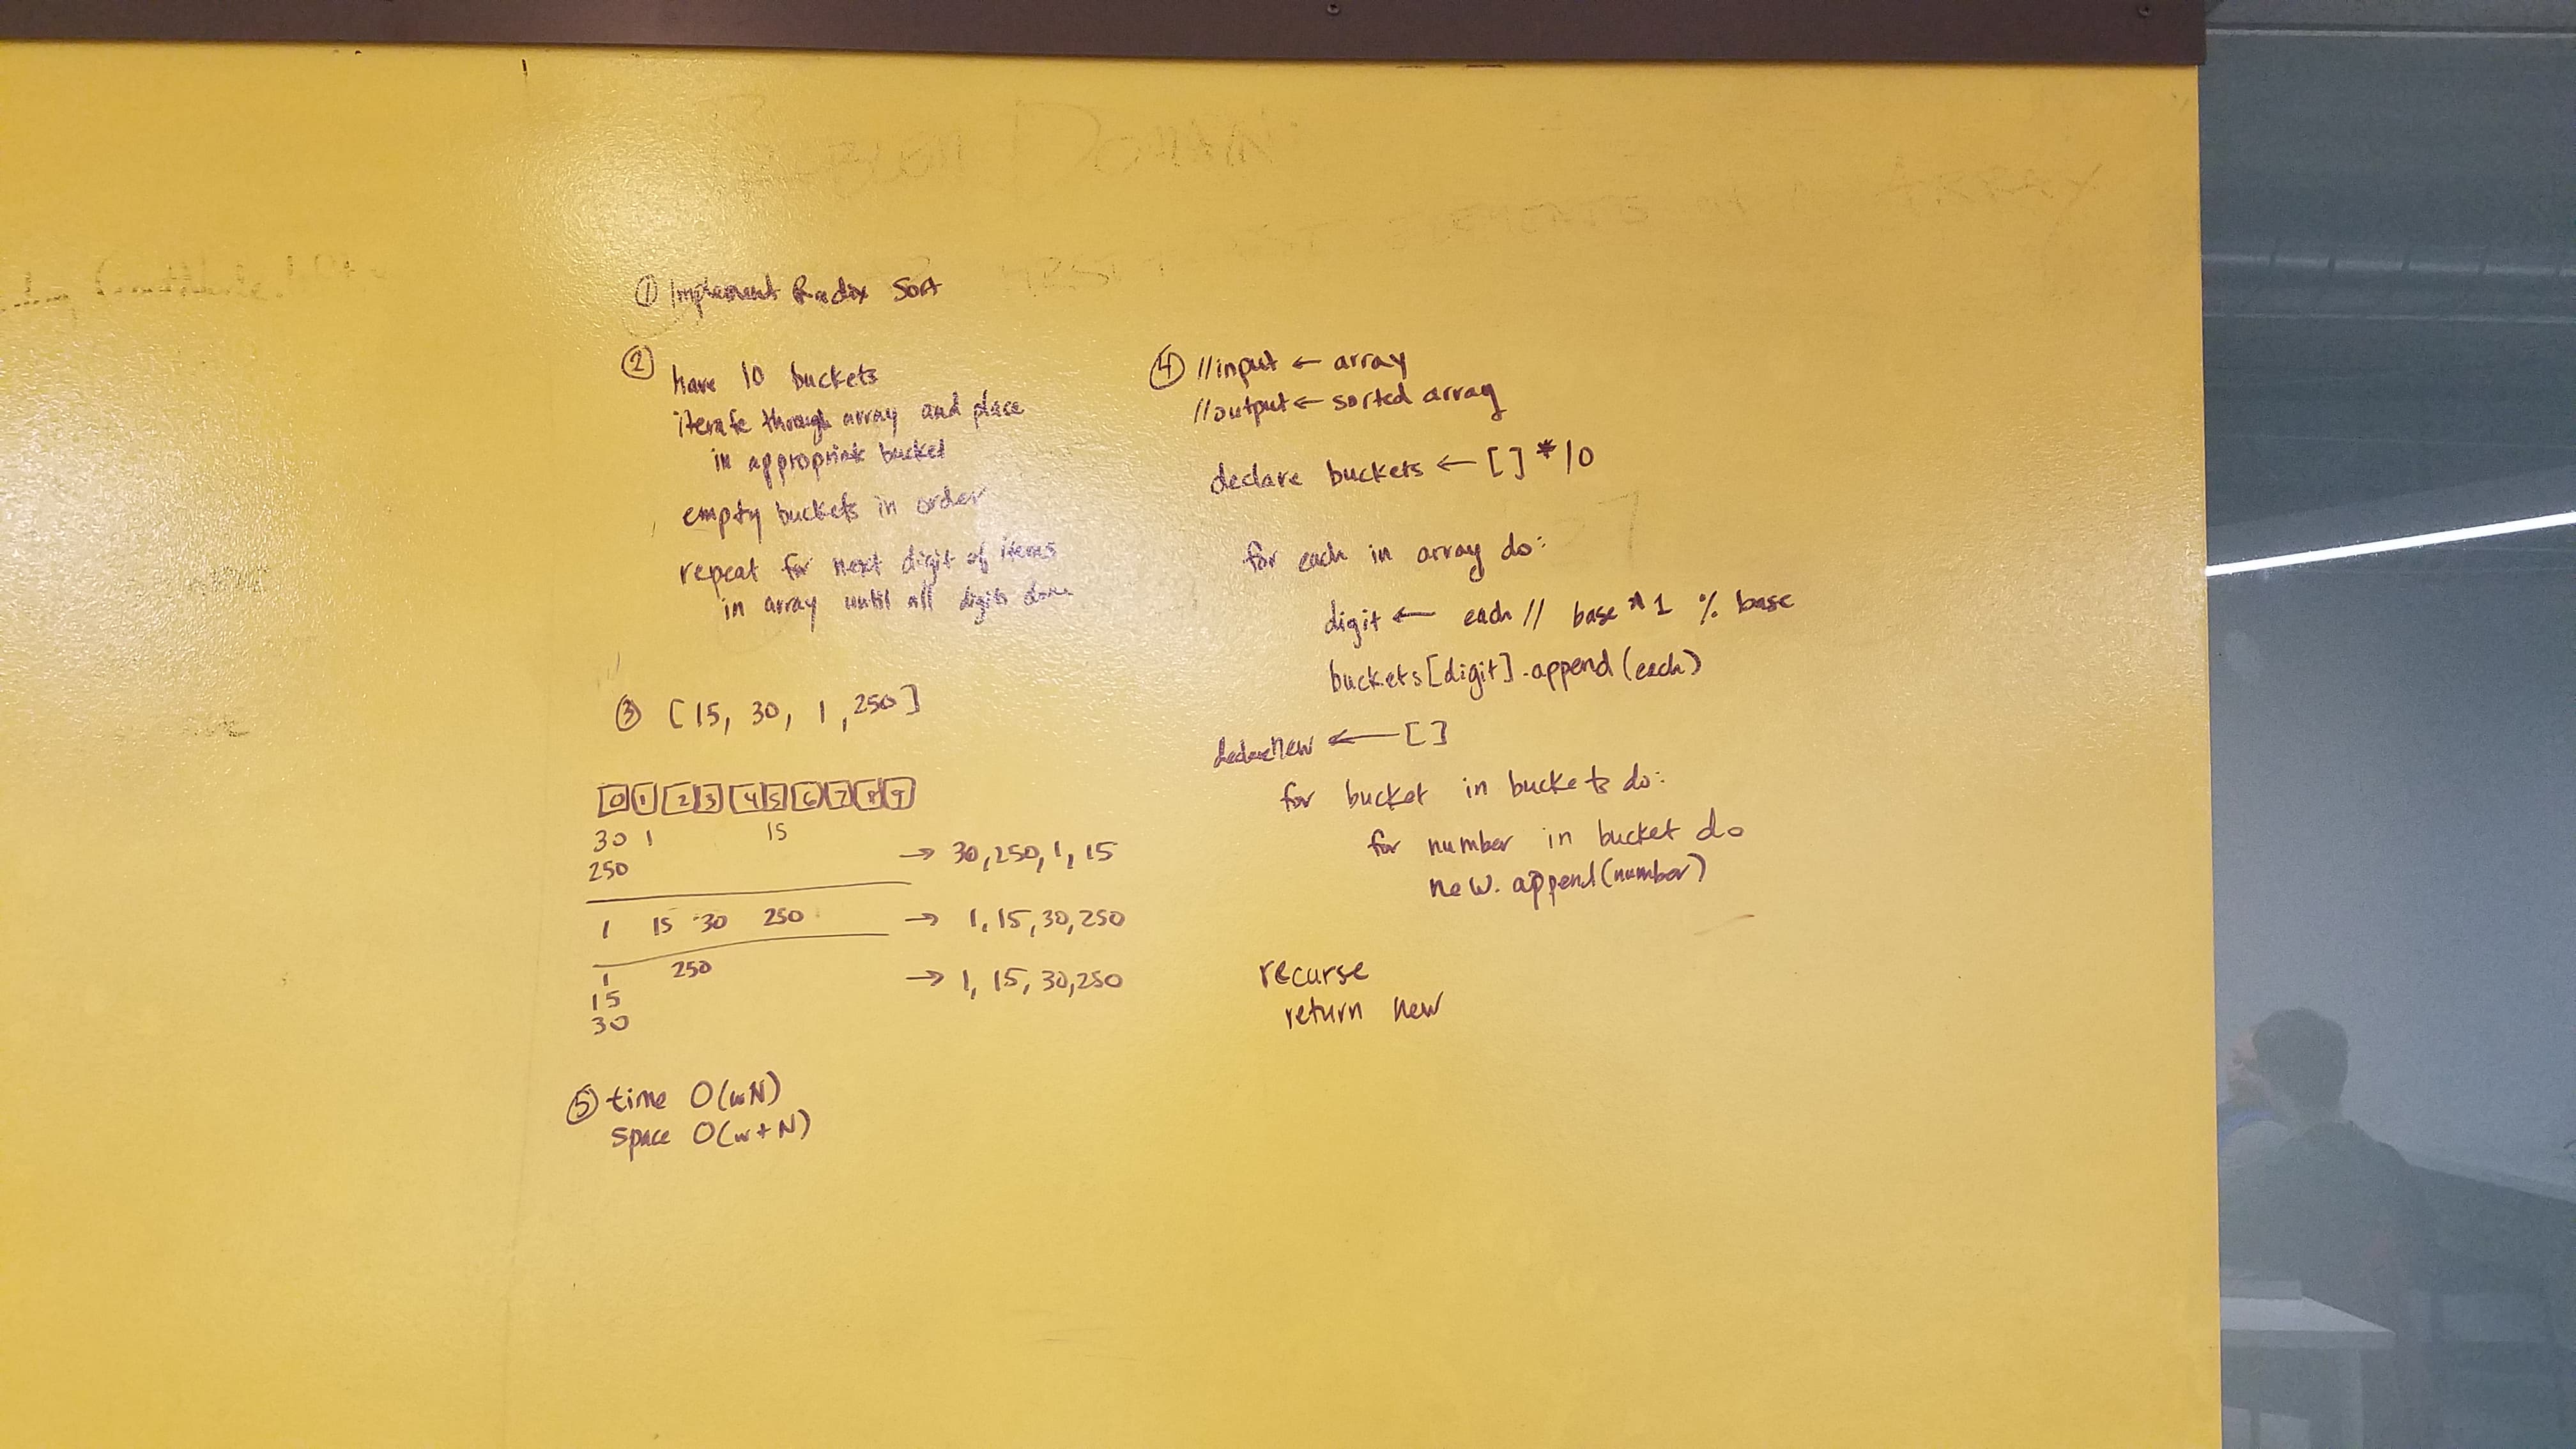 DOMAIN
ELEMENTS
ARRAY
① Implement Radix Sort
② have 10 buckets
iterate through array and place
in appropriate bucket
empty buckets in order
repeat for next digit of items
in array until all digits done
③ [15, 30, 1, 250]
0 1 2 3 4 5 6 7 8 9
30 1 15
250
→ 30, 250, 1, 15
1 15 30 250 → 1, 15, 30, 250
1 250 → 1, 15, 30, 250
15
30
⑤ time O(wN)
space O(w+N)
④ //input ← array
//output ← sorted array
declare buckets ← [] * 10
for each in array do:
digit ← each // base * 1 % base
buckets[digit].append(each)
declare new ← []
for bucket in buckets do:
for number in bucket do
new.append(number)
recurse
return new